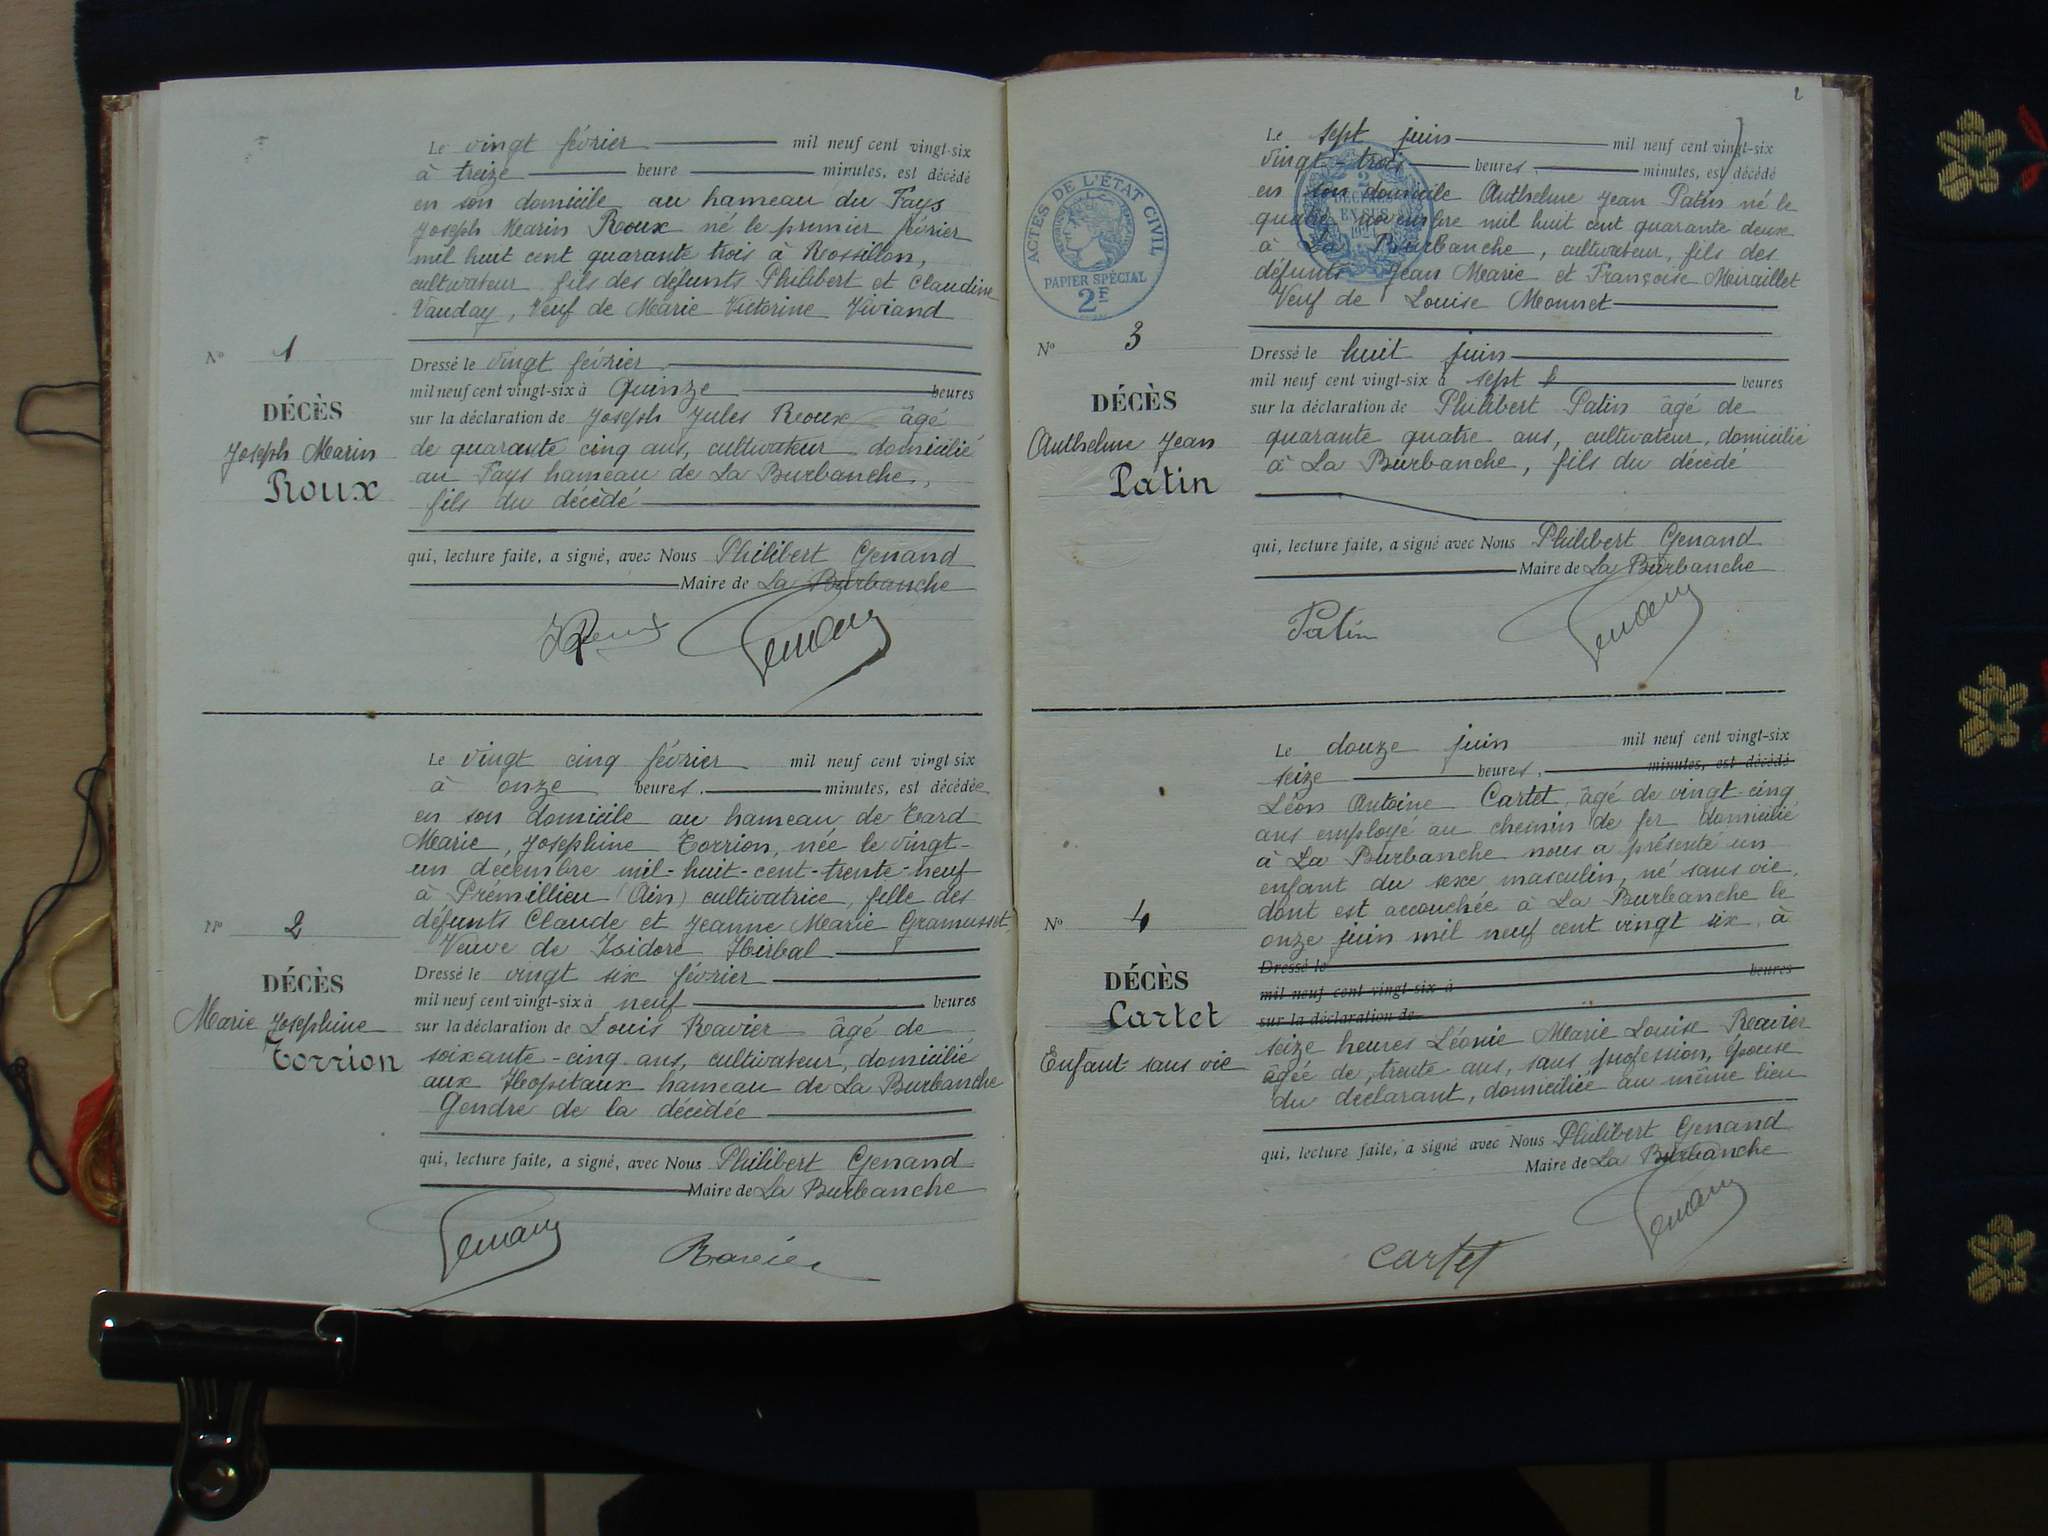 Le vingt février mil neuf cent vingt-six
à treize heure minutes, est décédé
en son domicile au hameau du Fays
Joseph Marin Roux né le premier février
mil huit cent quarante trois à Rossillon,
cultivateur fils des défunts Philibert et Claudine
Vauday, Veuf de Marie Victorine Viviand
N° 1
DÉCÈS
Joseph Marin
Roux
Dressé le vingt février
mil neuf cent vingt-six à Quinze heures
sur la déclaration de Joseph Jules Roux âgé
de quarante cinq ans, cultivateur domicilié
au Fays hameau de La Burbanche,
fils du décédé
qui, lecture faite, a signé, avec Nous Philibert Genand
Maire de La Burbanche
Genand
Le vingt cinq février mil neuf cent vingt six
à onze heures. minutes, est décédée
en son domicile au hameau de Tard
Marie, Joséphine Torrion, née le vingt-
un décembre mil-huit-cent-trente-neuf
à Prémillieu (Ain) cultivatrice, fille des
défunts Claude et Jeanne Marie Gramusset,
Veuve de Isidore Hirbal
N° 2
DÉCÈS
Marie Joséphine
Torrion
Dressé le vingt six février
mil neuf cent vingt-six à neuf heures
sur la déclaration de Louis Ravier âgé de
soixante-cinq ans, cultivateur, domicilié
aux Hopitaux hameau de La Burbanche
Gendre de la décédée
qui, lecture faite, a signé, avec Nous Philibert Genand
Maire de La Burbanche
Genand Ravier
2
ACTES DE L'ÉTAT CIVIL
PAPIER SPÉCIAL
2F
Le sept juin mil neuf cent vingt-six
vingt-trois heures minutes, est décédé
en son domicile Anthelme Jean Patin né le
quatre novembre mil huit cent quarante deux
à La Burbanche, cultivateur, fils des
défunts Jean Marie et Françoise Miraillet
Veuf de Louise Monnet
N° 3
DÉCÈS
Anthelme Jean
Patin
Dressé le huit juin
mil neuf cent vingt-six à sept heures
sur la déclaration de Philibert Patin âgé de
quarante quatre ans, cultivateur, domicilié
à La Burbanche, fils du décédé
qui, lecture faite, a signé avec Nous Philibert Genand
Maire de La Burbanche
Patin Genand
Le douze juin mil neuf cent vingt-six
seize heures, minutes, est décédé
Léon Antoine Cartet, âgé de vingt-cinq
ans employé au chemin de fer domicilié
à La Burbanche nous a présenté un
enfant du sexe masculin, né sans vie,
dont est accouchée à La Burbanche le
onze juin mil neuf cent vingt six, à
N° 4
DÉCÈS
Cartet
Enfant sans vie
Dressé le
mil neuf cent vingt-six à heures
sur la déclaration de
seize heures Léonie Marie Louise Ravier
âgée de trente ans, sans profession, épouse
du déclarant, domiciliée au même lieu
qui, lecture faite, a signé avec Nous Philibert Genand
Maire de La Burbanche
Cartet Genand